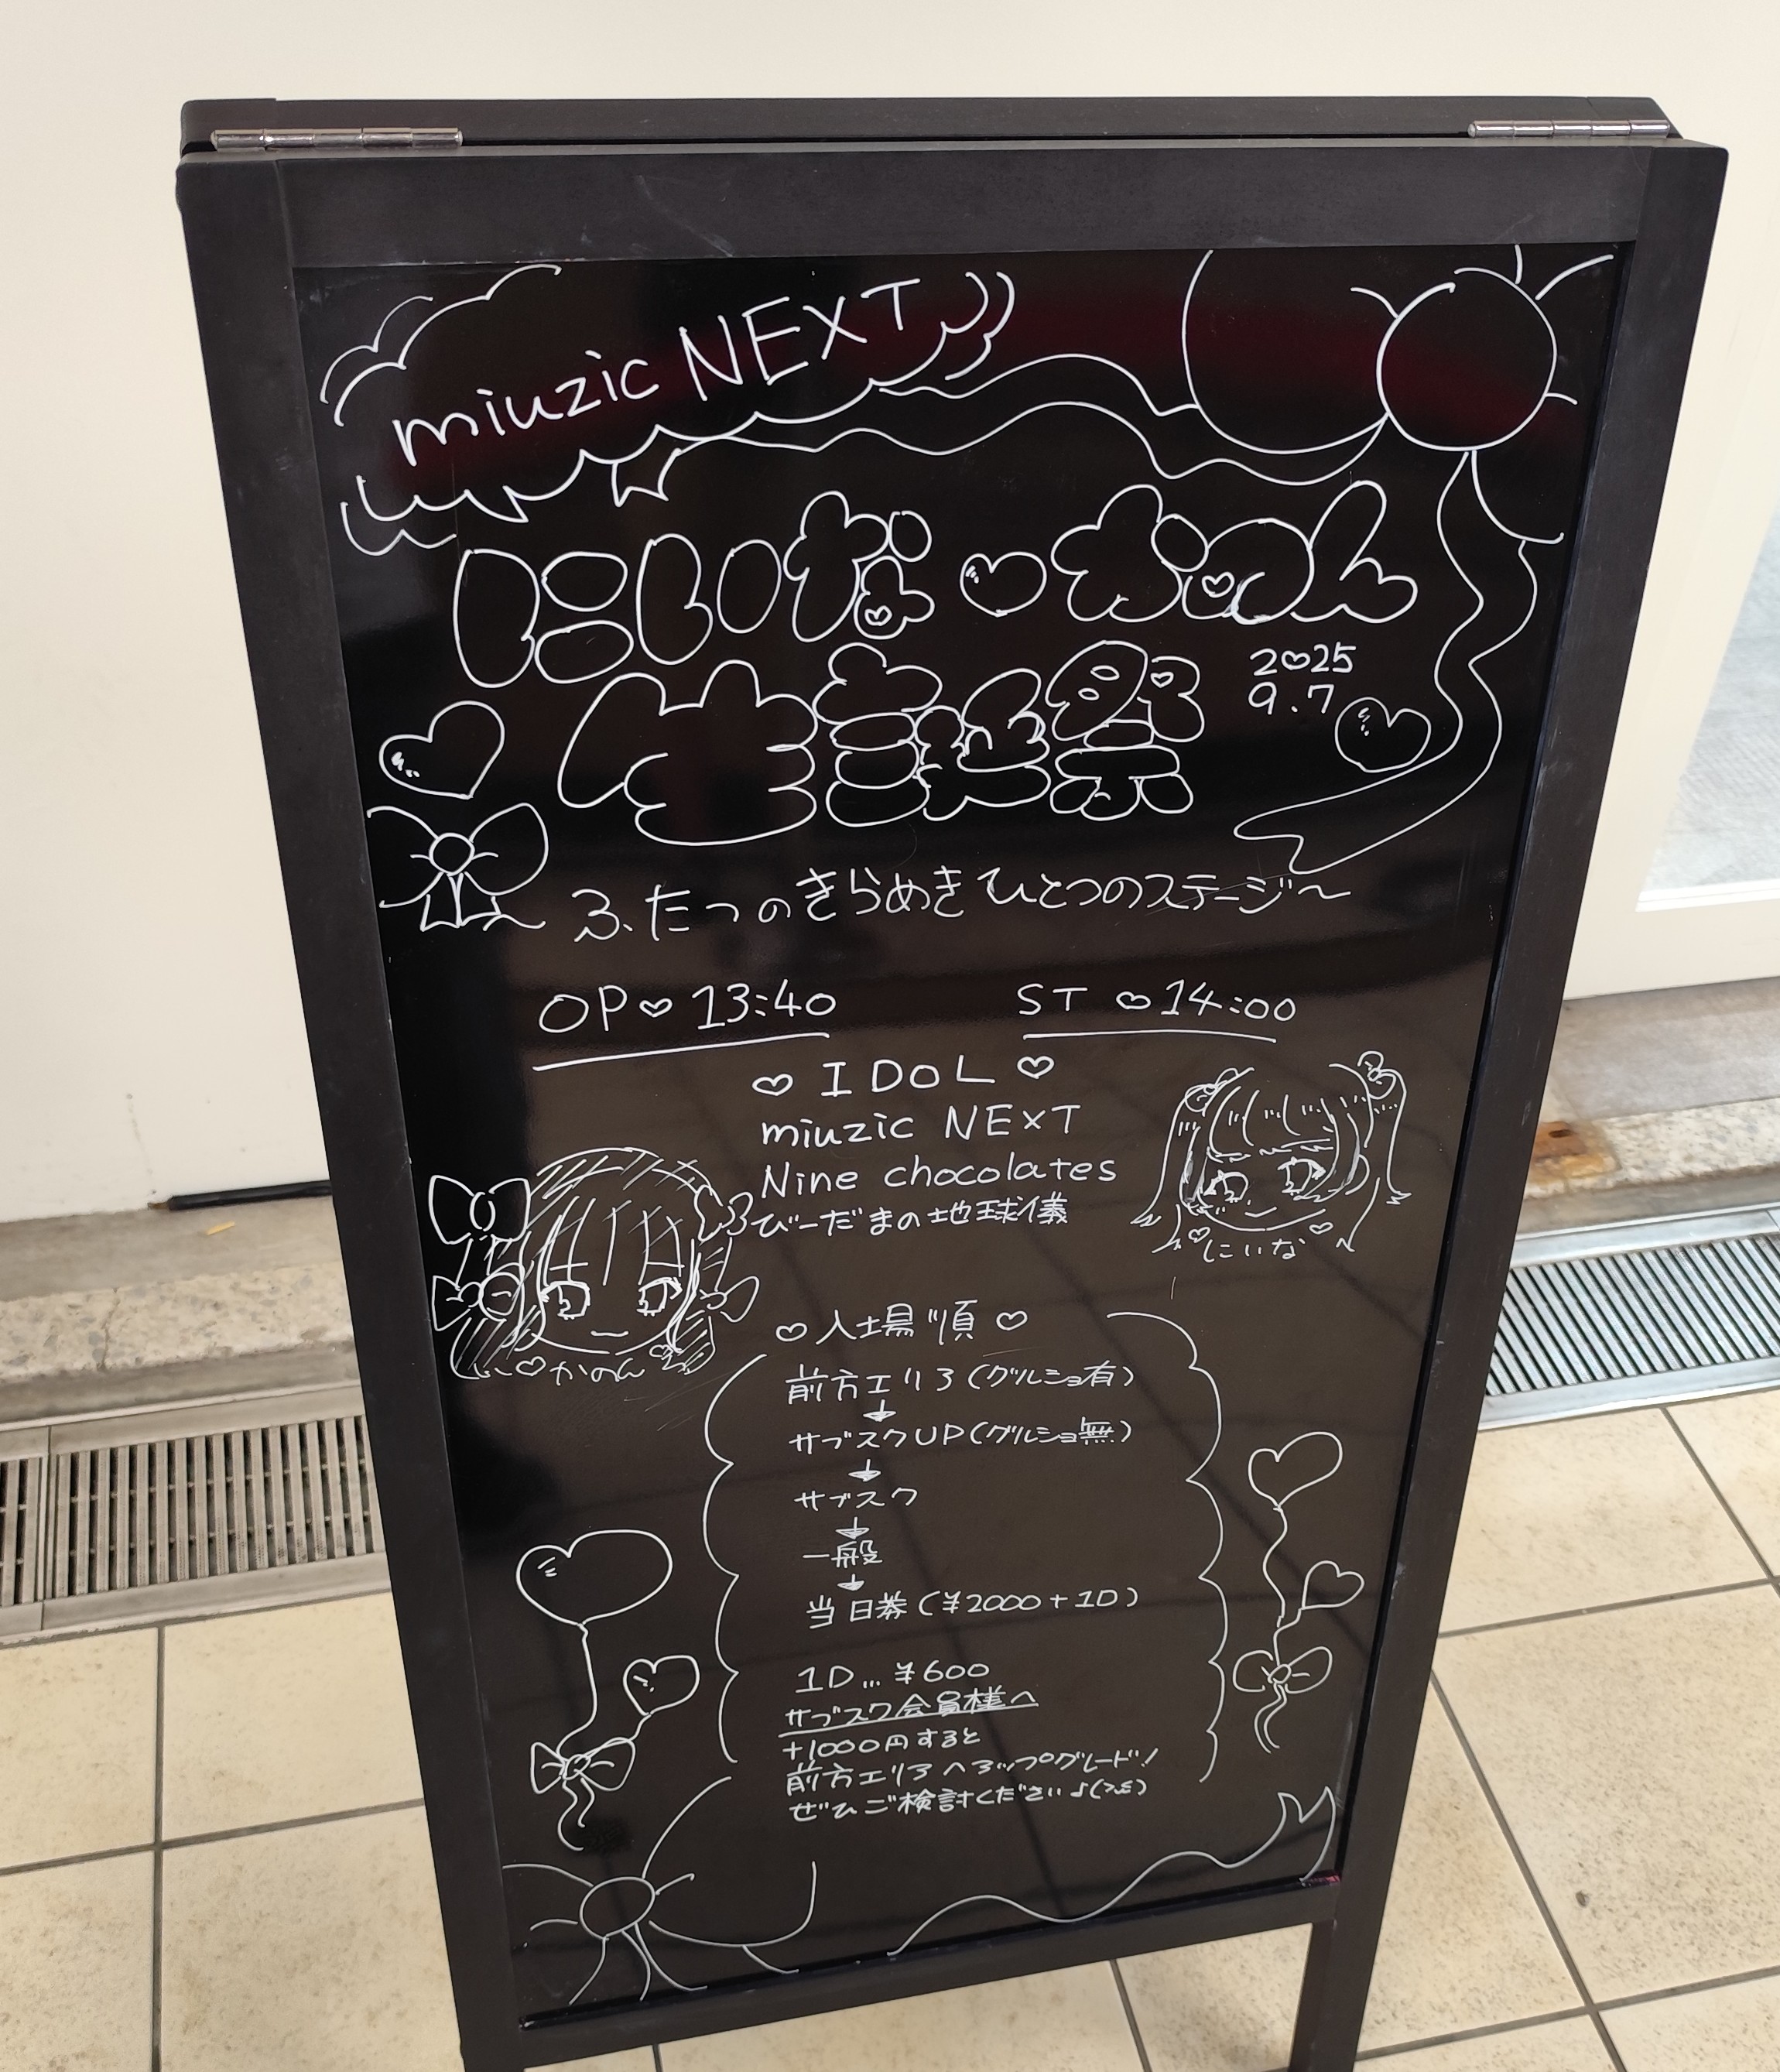 miuzic NEXT
にいな♡かのん
生誕祭
2♡25
9.7
ふたつのきらめきひとつのステージ〜
OP♡13:40 ST♡14:00
♡IDOL♡
miuzic NEXT
Nine chocolates
びーだまの地球儀
♡にいな♡
♡かのん♡
♡入場順♡
前方エリア(グルショ有)
↓
サブスクUP(グルショ無)
↓
サブスク
↓
一般
↓
当日券(¥2000+1D)
1D…¥600
サブスク会員様へ
+1000円すると
前方エリアへアップグレード!
ぜひご検討ください♪